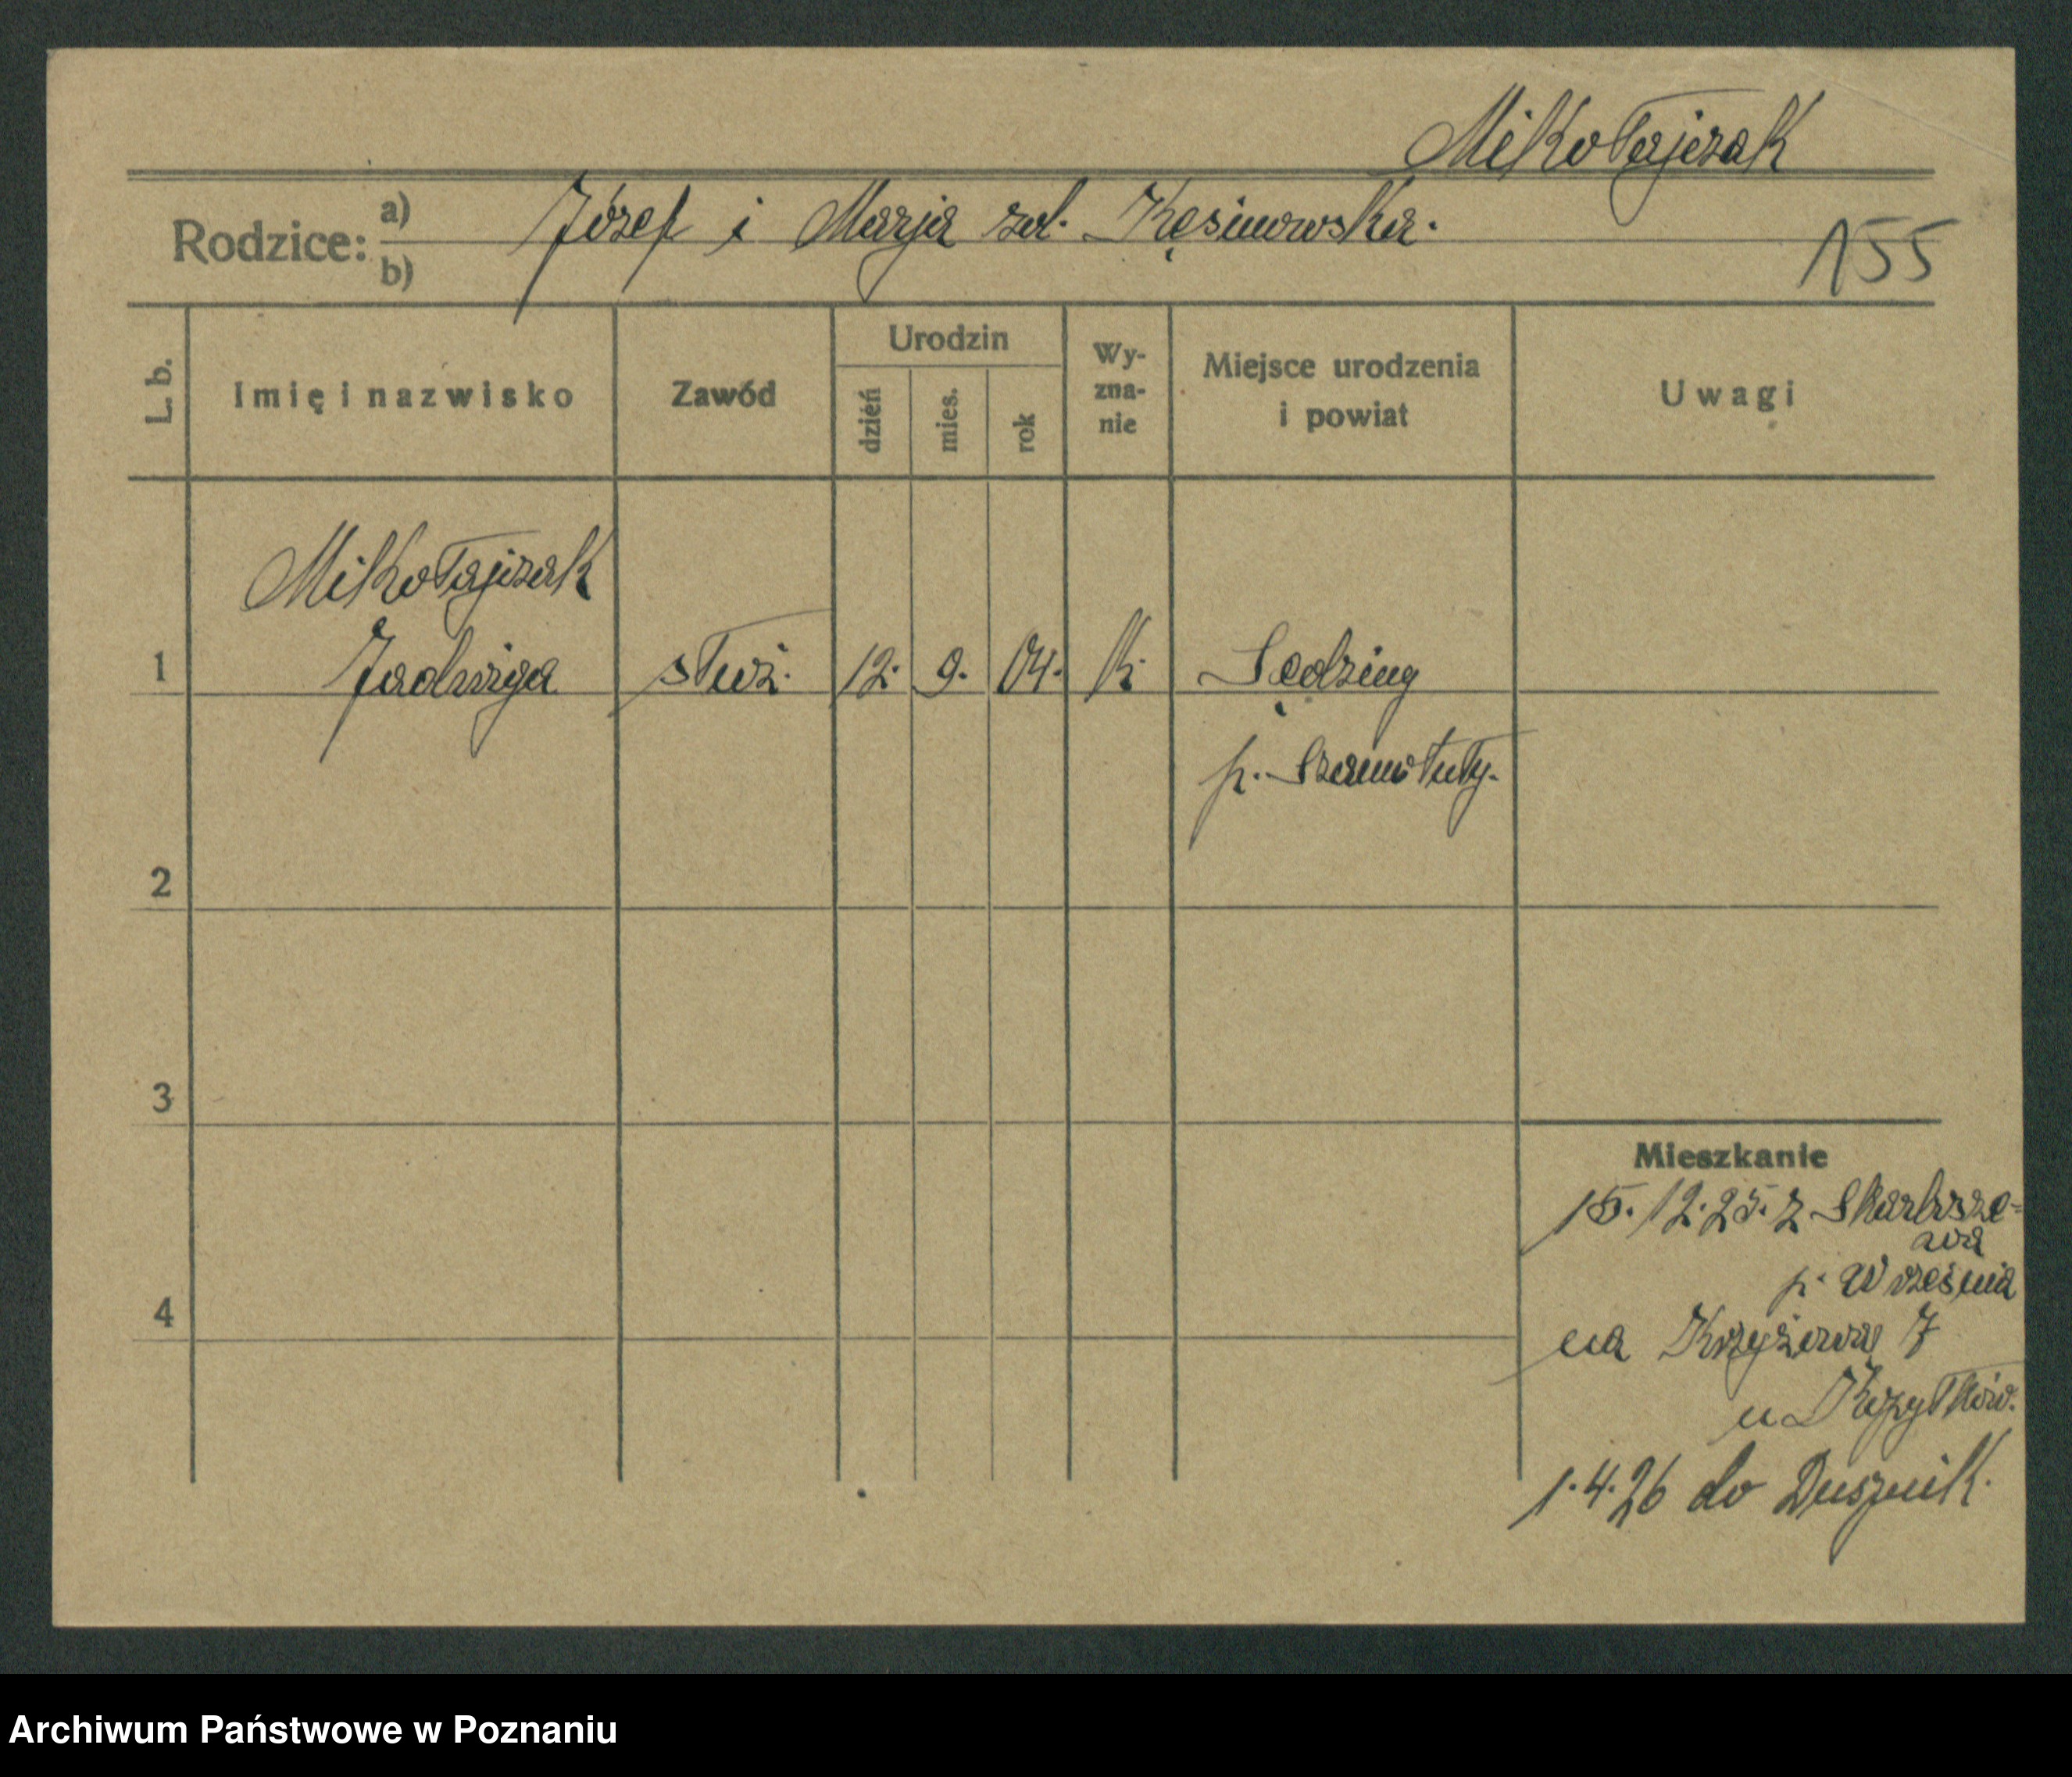 Mikołajczak
Rodzice: a) Józef i Marja zd. Kęsinowska.
b)
155
L. b.
Imię i nazwisko
Zawód
Urodzin
dzień
mies.
rok
Wy-
zna-
nie
Miejsce urodzenia
i powiat
Uwagi
Mikołajczak
1 Jadwiga służ. 12. 9. 04. k. Sędziny
p. Szamotuły.
2
3
4
Mieszkanie
15.12.25. z Skarbosze-
wa
p. Września
na Krzyżową 7
u
1.4.26 do Dusznik.
Archiwum Państwowe w Poznaniu